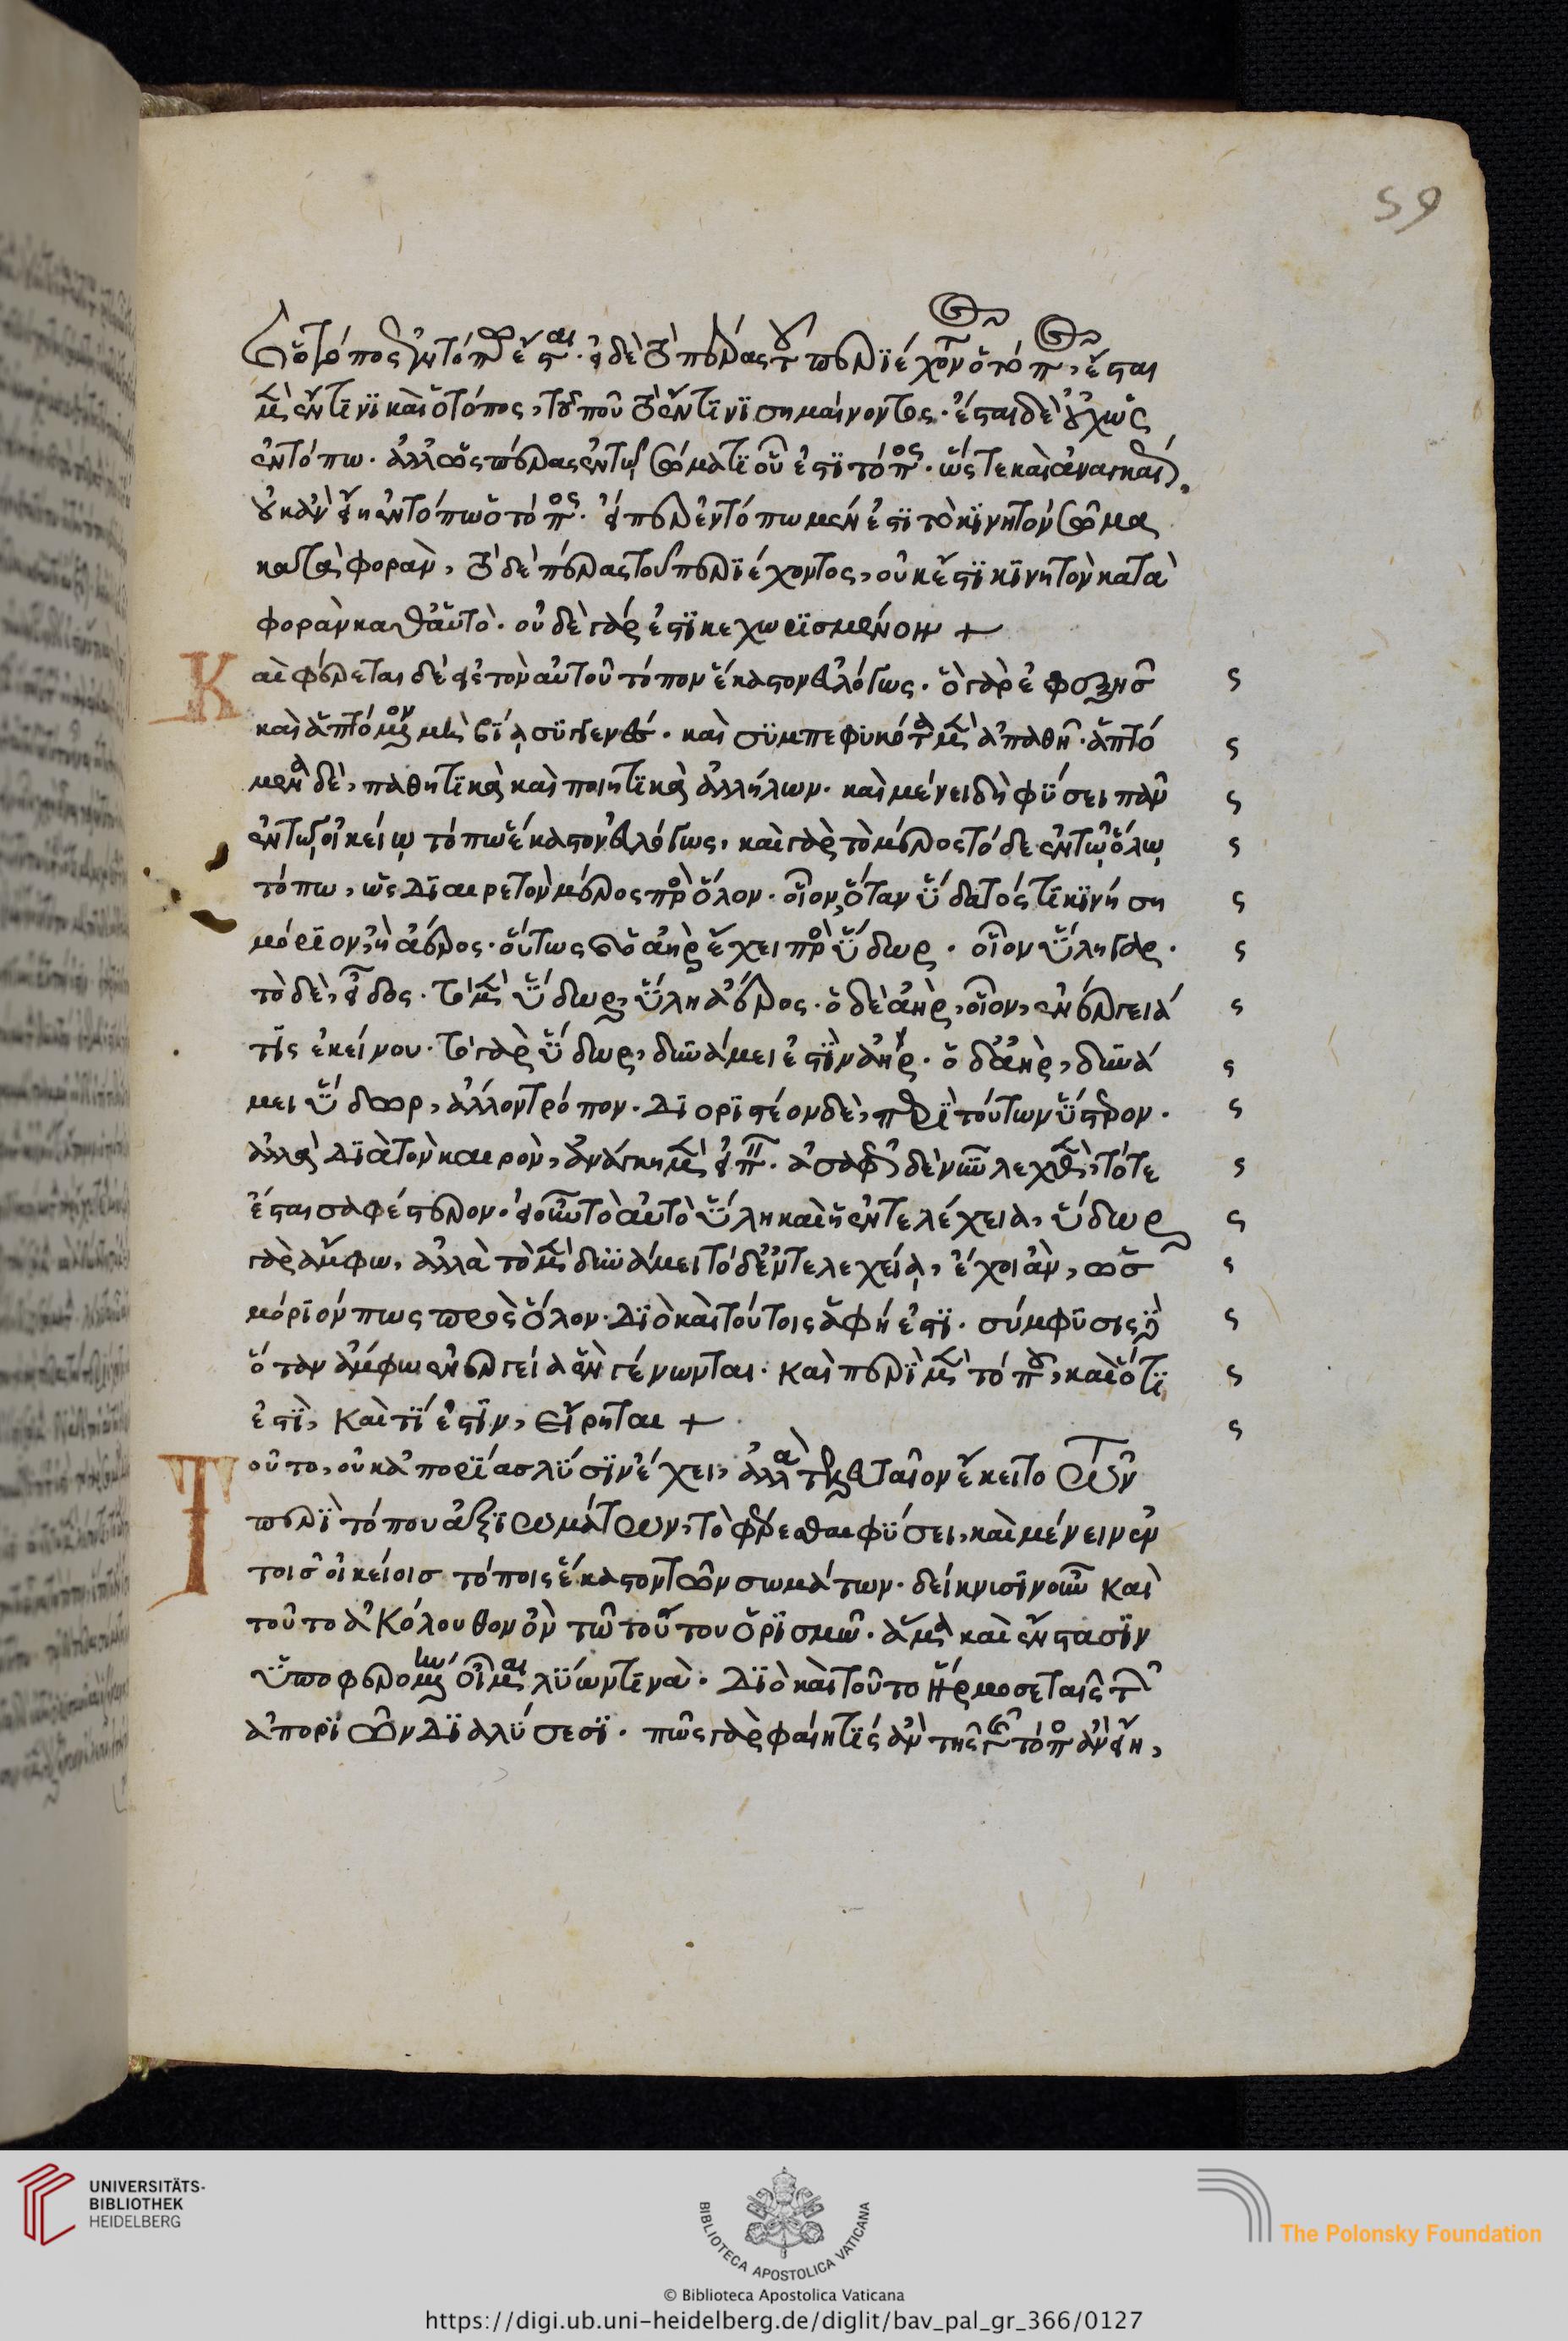 59
ὁ τόπος ἐν τόπω ἔσται. εἰ δὲ τὸ πέρας τοῦ περιέχοντος ὁ τόπος, ἔσται
μὲν ἔν τινι καὶ ὁ τόπος, τοῦ ποῦ τὸ ἔν τινι σημαίνοντος. ἔσται δὲ οὐχ ὡς
ἐν τόπω. ἀλλ' ὡς πέρας ἐν τῷ σώματι οὗ ἐστι τόπος. ὥστε καὶ ἀναγκαῖ
οὐκ ἂν εἴη ἐν τόπω ὁ τόπος. εἴπερ ἐν τόπω μέν ἐστι τὸ κινητὸν σῶμα
κατὰ φορὰν, τὸ δὲ πέρας τοῦ περιέχοντος, οὐκ ἔστι κινητὸν κατὰ
φορὰν καθ' αὑτὸ. οὐδὲ γάρ ἐστι κεχωρισμένον +
Καὶ φέρεται δὲ εἰς τὸν αὐτοῦ τόπον ἕκαστον εὐλόγως. ὃ γὰρ ἐφεξῆσ
καὶ ἁπτόμενον μὴ βίᾳ συγγενές. καὶ συμπεφυκότα μὲν ἀπαθῆ. ἁπτό
μενα δὲ, παθητικὰ καὶ ποιητικὰ ἀλλήλων. καὶ μένει δὴ φύσει πᾶν
ἐν τῷ οἰκείῳ τόπω ἕκαστον εὐλόγως, καὶ γὰρ τὸ μέρος τόδε ἐν τῷ ὅλῳ
τόπω, ὡς διαιρετὸν μέρος πρὸς ὅλον. οἷον, ὅταν ὕδατός τι κινήση
μόριον, ἢ ἀέρος. οὕτως καὶ ὁ ἀὴρ ἔχει πρὸς ὕδωρ. οἷον ὕλη γὰρ.
τὸ δὲ, εἶδος. τὸ μὲν ὕδωρ, ὕλη ἀέρος. ὁ δὲ ἀὴρ, οἷον, ἐνέργειά
τις ἐκείνου. τὸ γὰρ ὕδωρ, δυνάμει ἐστὶν ἀὴρ. ὁ δ' ἀὴρ, δυνά
μει ὕδωρ, ἄλλον τρόπον. διοριστέον δὲ, περὶ τούτων ὕστερον.
ἀλλὰ διὰ τὸν καιρὸν, ἀνάγκη μὲν εἰπεῖν. ἀσαφῶς δὲ νῦν λεχθὲν, τότε
ἔσται σαφέστερον. εἰ οὖν τὸ αὐτὸ ὕλη καὶ ἡ ἐντελέχεια, ὕδωρ
γὰρ ἄμφω, ἀλλὰ τὸ μὲν δυνάμει τὸ δ' ἐντελεχείᾳ, ἔχοι ἂν, ὡσ
μόριόν πως πρὸς ὅλον. διὸ καὶ τούτοις ἁφή ἐστι. σύμφυσις δὲ
ὅταν ἄμφω ἐνεργείᾳ ἓν γένωνται. καὶ περὶ μὲν τόπου, καὶ ὅτι
ἐστὶ, καὶ τί ἐστιν, εἴρηται +
Τοῦτο, οὐκ ἀπορίας λύσιν ἔχει, ἀλλὰ τελευταῖον ἔκειτο τῶν
περὶ τόπου ἀξιωμάτων, τὸ φέρεσθαι φύσει, καὶ μένειν ἐν
τοισ οἰκείοισ τόποις ἕκαστον τῶν σωμάτων. δείκνυσιν οὖν καὶ
τοῦτο ἀκόλουθον ὂν τῶ τούτου ὁρισμῶ. ἅμα καὶ ἔνστασιν
ὑποφερομένην οἶμαι λύων τινὰ. διὸ καὶ τοῦτο ἥρμοσε ταῖς τῶν
ἀποριῶν διαλύσεσι. πῶς γὰρ φαίη τίς ἂν τῆς γῆς τόπος ἂν εἴη,
UNIVERSITÄTS-
BIBLIOTHEK
HEIDELBERG
BIBLIOTECA APOSTOLICA VATICANA
The Polonsky Foundation
© Biblioteca Apostolica Vaticana
https://digi.ub.uni-heidelberg.de/diglit/bav_pal_gr_366/0127